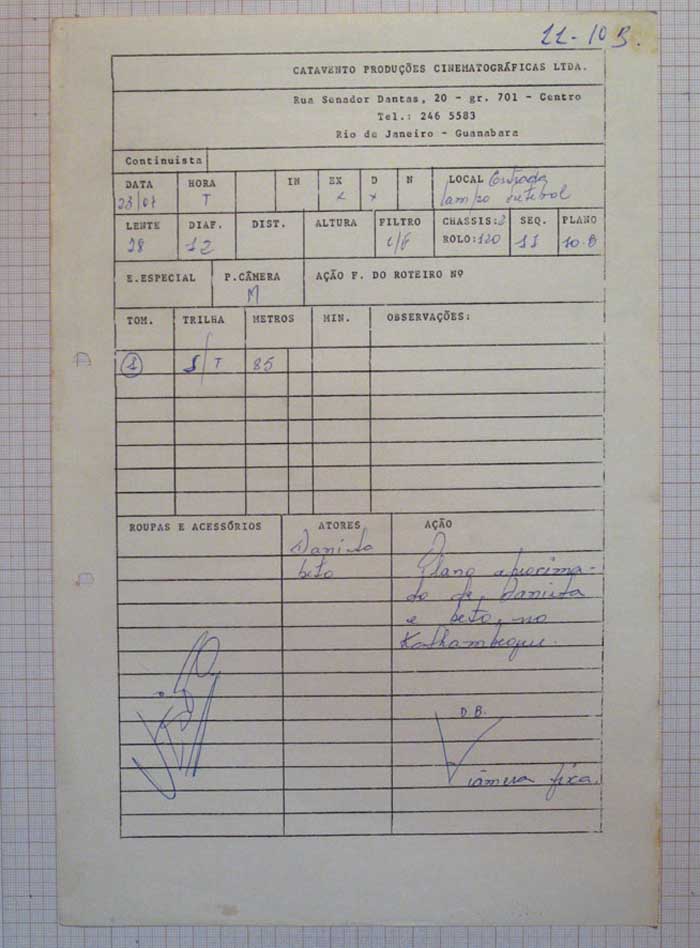 11-10B.
CATAVENTO PRODUÇÕES CINEMATOGRÁFICAS LTDA.
Rua Senador Dantas, 20 - gr. 701 - Centro
Tel.: 246 5583
Rio de Janeiro - Guanabara
Continuista
DATA HORA IN EX D N LOCAL Entrada
23/07 T x x Campo futebol
LENTE DIAF. DIST. ALTURA FILTRO CHASSIS:3 SEQ. PLANO
28 12 c/F ROLO:120 11 10-B
E.ESPECIAL P.CÂMERA AÇÃO F. DO ROTEIRO Nº
M
TOM. TRILHA METROS MIN. OBSERVAÇÕES:
1 S/T 85
ROUPAS E ACESSÓRIOS ATORES AÇÃO
beto Plano aproxima-
do de
e beto, no
Kalhambeque.
D.B.
Câmera fixa.